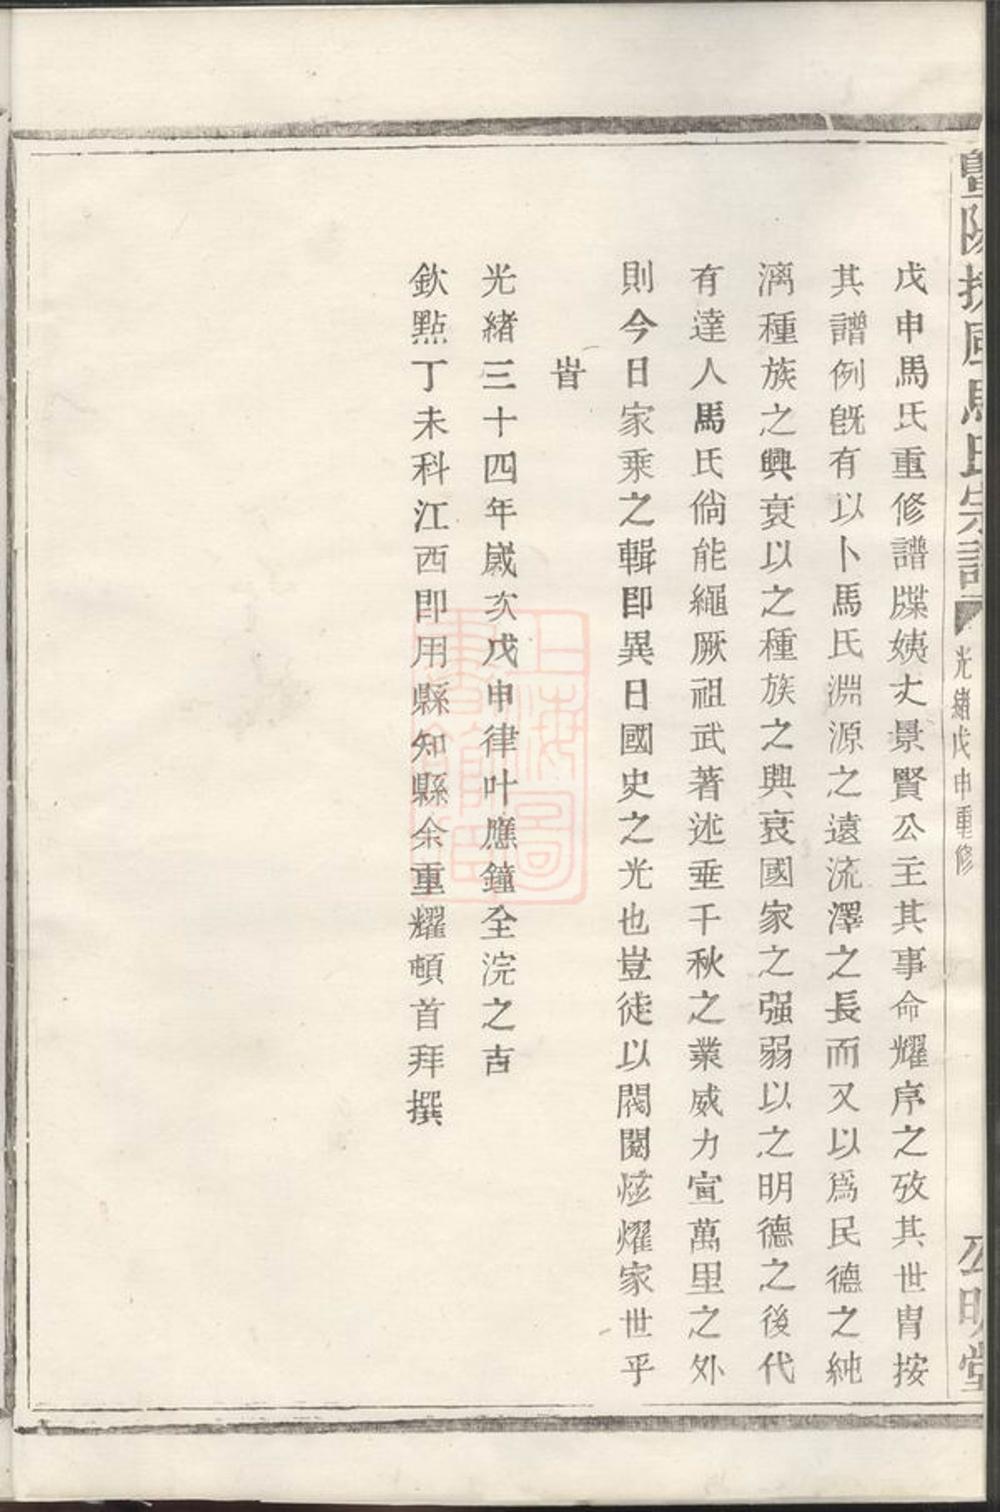 暨陽扶風馬氏宗譜
光緒戊申重修
公明堂
戊申馬氏重修譜牒姨丈景賢公主其事命耀序之攷其世胄按
其譜例既有以卜馬氏淵源之遠流澤之長而又以爲民德之純
漓種族之興衰以之種族之興衰國家之强弱以之明德之後代
有達人馬氏倘能繩厥祖武著述垂千秋之業威力宣萬里之外
則今日家乘之輯即異日國史之光也豈徒以閥閱炫燿家世乎
旹
光緒三十四年嵗次戊申律叶應鐘全浣之吉
欽點丁未科江西即用縣知縣余重耀頓首拜撰
上海圖書館藏